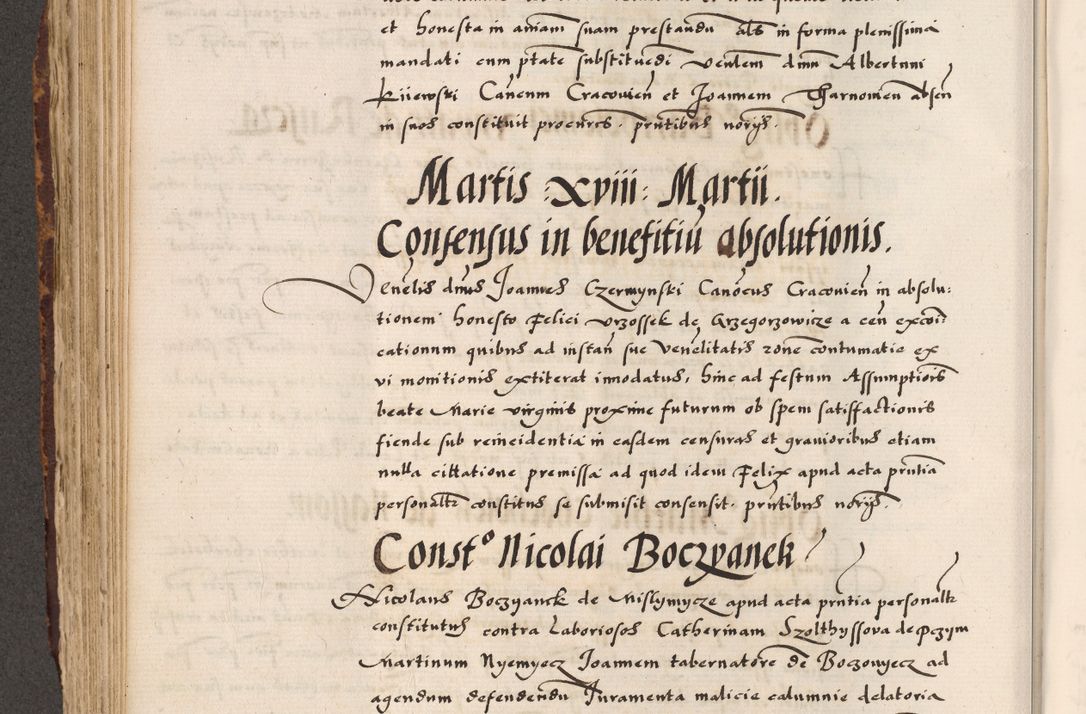 et honesta in aniam suam prestandu als in forma plenissima
mandati cum ptate substituedi Venlem dnm Albertum
Kijewski Canenm Cracovien et Joannem Tharnowien absen
in suos constituit procures. pntibus norijs.
Martis :xviii: Martii.
Consensus in benefitiu absolutionis.
Venelis dnus Joannes Czermynski Canocus Cracovien in absolu:
tionem honesto Felici Vrzossek de Grzegorzowize a cen excoi:
cationum quibus ad instan sue Venelitatis rone contumatie ex
vi monitionis extiterat innodatus, hinc ad festum Assumptiois
beate Marie virginis proxime futurum ob spem satisfactionis
fiende sub reincidentia in easdem censuras et gravioribus etiam
nulla cittatione premissa ad quod idem Felix apud acta pntia
personalr constitus se submisit consensit. pntibus norijs.
Consto Nicolai Boczyanek
Nicolaus Boczyanek de Misslymycze apud acta pntia personalr
constitutus contra Laboriosos Catherinam Szolthyssova de Pczym
Martinum Nyemyecz Joannem tabernatore de Boczowyecz ad
agendum defendendu Juramenta malicie calumnie delatoria